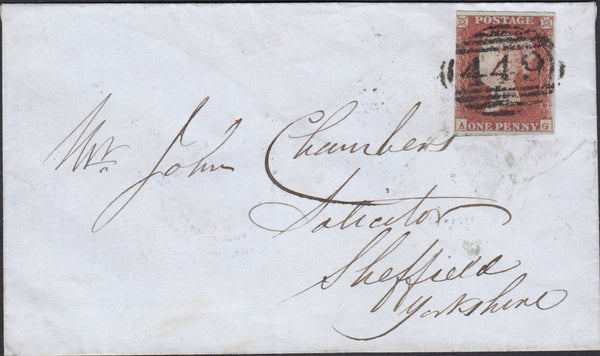 POSTAGE
449
A ONE PENNY G
Mr. John Chambers
Solicitor
Sheffield
Yorkshire